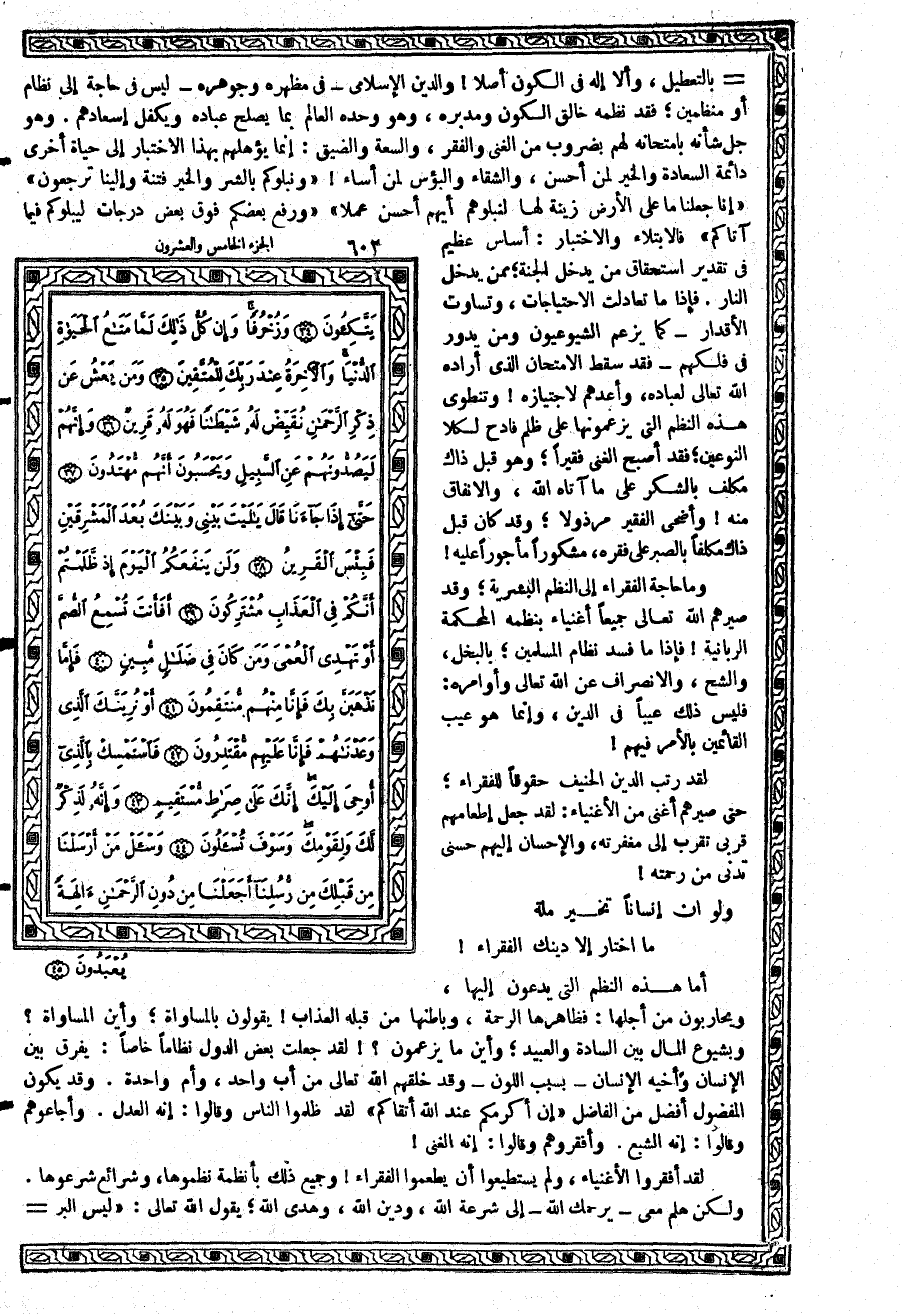 = بالتعطيل ، وألا إله فى الكون أصلا ! والدين الإسلامى ــ فى مظهره وجوهره ــ ليس فى حاجة إلى نظام
أو منظمين ؛ فقد نظمه خالق الكون ومدبره ، وهو وحده العالم بما يصلح عباده ويكفل إسعادهم . وهو
جل شأنه بامتحانه لهم بضروب من الغنى والفقر ، والسعة والضيق : إنما يؤهلهم بهذا الاختبار إلى حياة أخرى
دائمة السعادة والخير لمن أحسن ، والشقاء والبؤس لمن أساء ! «ونبلوكم بالشر والخير فتنة وإلينا ترجعون»
«إنا جعلنا ما على الأرض زينة لها لنبلوهم أيهم أحسن عملا» «ورفع بعضكم فوق بعض درجات ليبلوكم فيما
آتاكم» فالابتلاء والاختبار : أساس عظيم
فى تقدير استحقاق من يدخل الجنة؛ ممن يدخل
النار . فإذا ما تعادلت الاحتياجات ، وتساوت
الأقدار ــ كما يزعم الشيوعيون ومن يدور
فى فلكهم ــ فقد سقط الامتحان الذى أراده
الله تعالى لعباده، وأعدهم لاجتيازه ! وتنطوى
هذه النظم التى يزعمونها على ظلم فادح لكلا
النوعين؛ فقد أصبح الغنى فقيراً ؛ وهو قبل ذاك
مكلف بالشكر على ما آتاه الله ، والانفاق
منه ! وأضحى الفقير مرذولا ؛ وقد كان قبل
ذاك مكلفاً بالصبر على فقره، مشكوراً مأجوراً عليه !
وما حاجة الفقراء إلى النظم البشرية ؛ وقد
صيرهم الله تعالى جميعاً أغنياء بنظمه المحكمة
الربانية ! فإذا ما فسد نظام المسلمين ؛ بالبخل،
والشح ، والانصراف عن الله تعالى وأوامره:
فليس ذلك عيباً فى الدين ، وإنما هو عيب
القائمين بالأمر فيهم !
لقد رتب الدين الحنيف حقوقاً للفقراء ؛
حتى صيرهم أغنى من الأغنياء: لقد جعل إطعامهم
قربى تقرب إلى مغفرته، والإحسان إليهم حسنى
تدنى من رحمته !
ولو ان إنساناً تخير ملة
ما اختار إلا دينك الفقراء !
أما هذه النظم التى يدعون إليها ،
الجزء الخامس والعشرون ٦٠٢
يَتَّكِـُٔونَ ٣٤ وَزُخْرُفًا ۚ وَإِن كُلُّ ذَٰلِكَ لَمَّا مَتَـٰعُ ٱلْحَيَوٰةِ
ٱلدُّنْيَا ۚ وَٱلْـَٔاخِرَةُ عِندَ رَبِّكَ لِلْمُتَّقِينَ ٣٥ وَمَن يَعْشُ عَن
ذِكْرِ ٱلرَّحْمَـٰنِ نُقَيِّضْ لَهُۥ شَيْطَـٰنًا فَهُوَ لَهُۥ قَرِينٌ ٣٦ وَإِنَّهُمْ
لَيَصُدُّونَهُمْ عَنِ ٱلسَّبِيلِ وَيَحْسَبُونَ أَنَّهُم مُّهْتَدُونَ ٣٧
حَتَّىٰٓ إِذَا جَآءَنَا قَالَ يَـٰلَيْتَ بَيْنِى وَبَيْنَكَ بُعْدَ ٱلْمَشْرِقَيْنِ
فَبِئْسَ ٱلْقَرِينُ ٣٨ وَلَن يَنفَعَكُمُ ٱلْيَوْمَ إِذ ظَّلَمْتُمْ
أَنَّكُمْ فِى ٱلْعَذَابِ مُشْتَرِكُونَ ٣٩ أَفَأَنتَ تُسْمِعُ ٱلصُّمَّ
أَوْ تَهْدِى ٱلْعُمْىَ وَمَن كَانَ فِى ضَلَـٰلٍ مُّبِينٍ ٤٠ فَإِمَّا
نَذْهَبَنَّ بِكَ فَإِنَّا مِنْهُم مُّنتَقِمُونَ ٤١ أَوْ نُرِيَنَّكَ ٱلَّذِى
وَعَدْنَـٰهُمْ فَإِنَّا عَلَيْهِم مُّقْتَدِرُونَ ٤٢ فَٱسْتَمْسِكْ بِٱلَّذِىٓ
أُوحِىَ إِلَيْكَ ۖ إِنَّكَ عَلَىٰ صِرَٰطٍ مُّسْتَقِيمٍ ٤٣ وَإِنَّهُۥ لَذِكْرٌ
لَّكَ وَلِقَوْمِكَ ۖ وَسَوْفَ تُسْـَٔلُونَ ٤٤ وَسْـَٔلْ مَنْ أَرْسَلْنَا
مِن قَبْلِكَ مِن رُّسُلِنَآ أَجَعَلْنَا مِن دُونِ ٱلرَّحْمَـٰنِ ءَالِهَةً
يُعْبَدُونَ ٤٥
ويحاربون من أجلها : فظاهرها الرحمة ، وباطنها من قبله العذاب ! يقولون بالمساواة ؛ وأين المساواة ؟
وبشيوع المال بين السادة والعبيد ؛ وأين ما يزعمون ؟ ! لقد جعلت بعض الدول نظاماً خاصاً : يفرق بين
الإنسان وأخيه الإنسان ــ بسبب اللون ــ وقد خلقهم الله تعالى من أب واحد ، وأم واحدة . وقد يكون
المفضول أفضل من الفاضل «إن أكرمكم عند الله أتقاكم» لقد ظلموا الناس وقالوا : إنه العدل . وأجاعوهم
وقالوا : إنه الشبع . وأفقروهم وقالوا : إنه الغنى !
لقد أفقروا الأغنياء ، ولم يستطيعوا أن يطعموا الفقراء ! وجميع ذلك بأنظمة نظموها، وشرائع شرعوها .
ولكن هلم معى ــ يرحمك الله ــ إلى شرعة الله ، ودين الله ، وهدى الله ؛ يقول الله تعالى : «ليس البر =